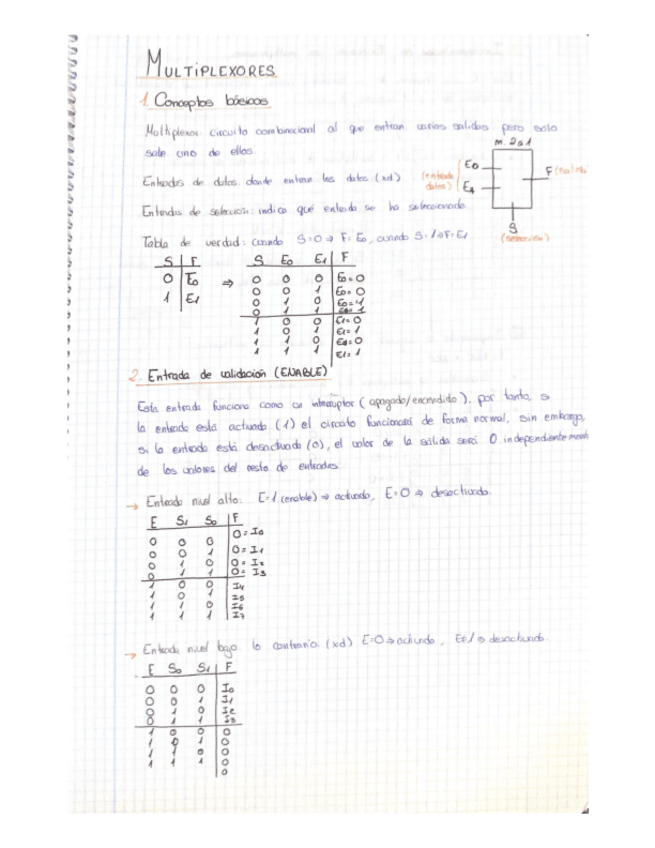 MULTIPLEXORES
1. Conceptos básicos
Multiplexor: circuito combinacional al que entran varias salidas pero solo
sale uno de ellos.
m. 2a1
E0
E1
(entrada datos)
F (salida)
S
(selección)
Entradas de datos: donde entran los datos (xd)
Entradas de selección: indica qué entrada se ha seleccionado.
Tabla de verdad: cuando S=0 ⇒ F=E0, cuando S=1 ⇒ F=E1
S F
0 E0
1 E1
⇒
S E0 E1 F
0 0 0 E0=0
0 0 1 E0=0
0 1 0 E0=1
0 1 1 E0=1
1 0 0 E1=0
1 0 1 E1=1
1 1 0 E1=0
1 1 1 E1=1
2. Entrada de validación (ENABLE)
Esta entrada funciona como un interruptor (apagado/encendido), por tanto, si
la entrada está activada (1) el circuito funcionará de forma normal, sin embargo,
si la entrada está desactivada (0), el valor de la salida será 0 independientemente
de los valores del resto de entradas.
→ Entrada nivel alto: E=1 (enable) ⇒ activado, E=0 ⇒ desactivado.
E S1 S0 F
0 0 0 0=I0
0 0 1 0=I1
0 1 0 0=I2
0 1 1 0=I3
1 0 0 I4
1 0 1 I5
1 1 0 I6
1 1 1 I7
→ Entrada nivel bajo: lo contrario (xd) E=0 ⇒ activado, E=1 ⇒ desactivado.
E S0 S1 F
0 0 0 I0
0 0 1 I1
0 1 0 I2
0 1 1 I3
1 0 0 0
1 0 1 0
1 1 0 0
1 1 1 0
0